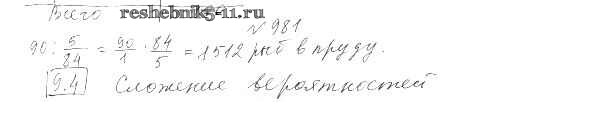 Всего
reshebnik5-11.ru
№ 981
90 : 5/84 = 90/1 · 84/5 = 1512 рыб в пруду.
9.4 Сложение вероятностей